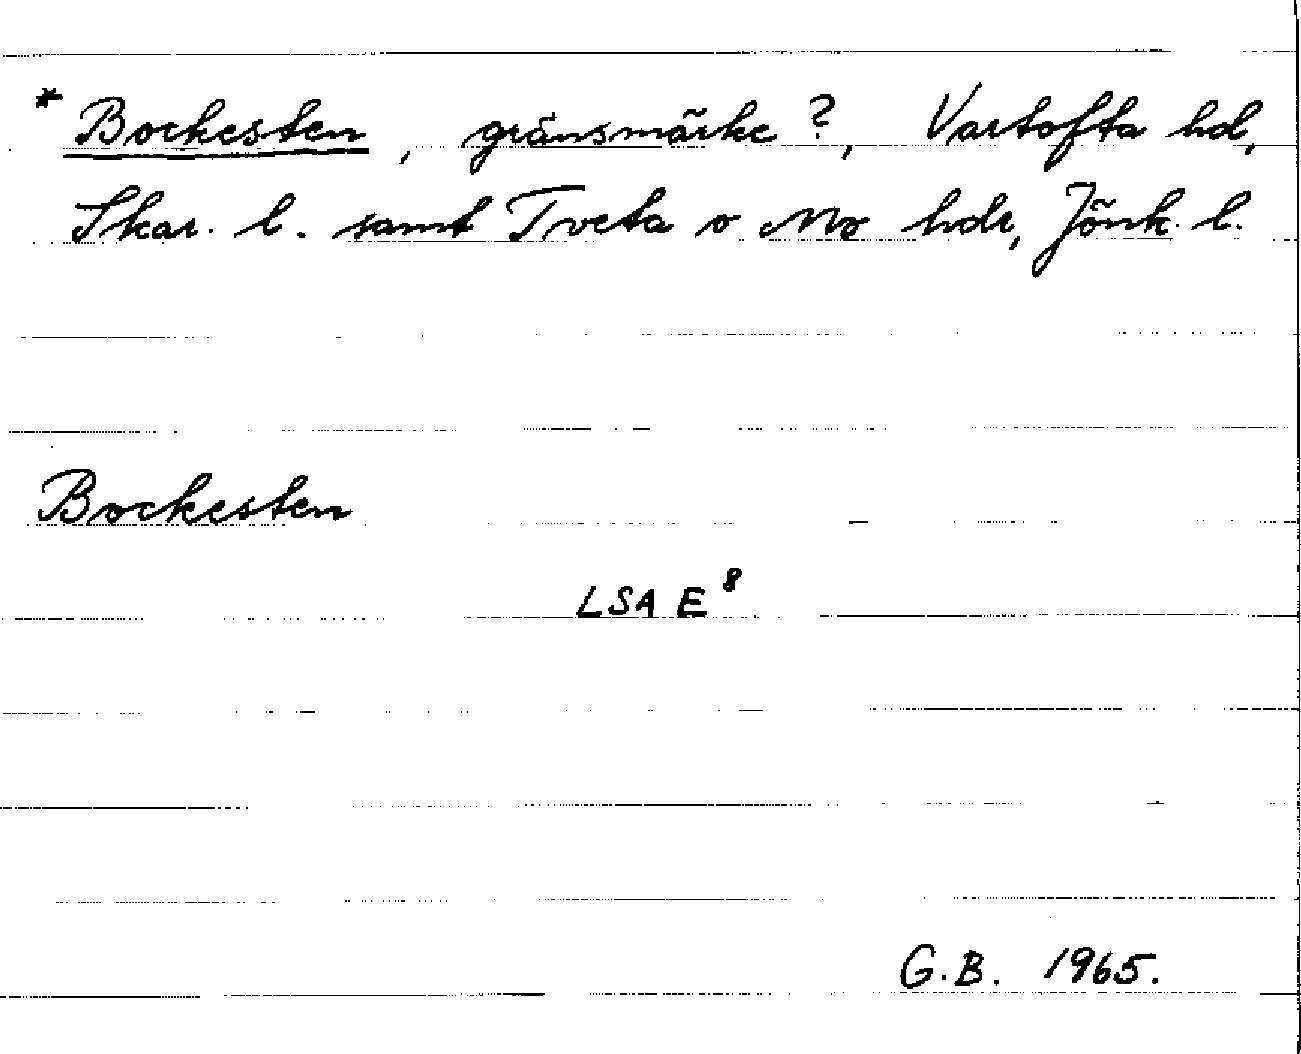 * Bockesten, gränsmärke?, Vartofta hd,
Skar. l. samt Tveta o Mo hdr, Jönk. l.
Bockesten
LSA E⁸
G.B. 1965.